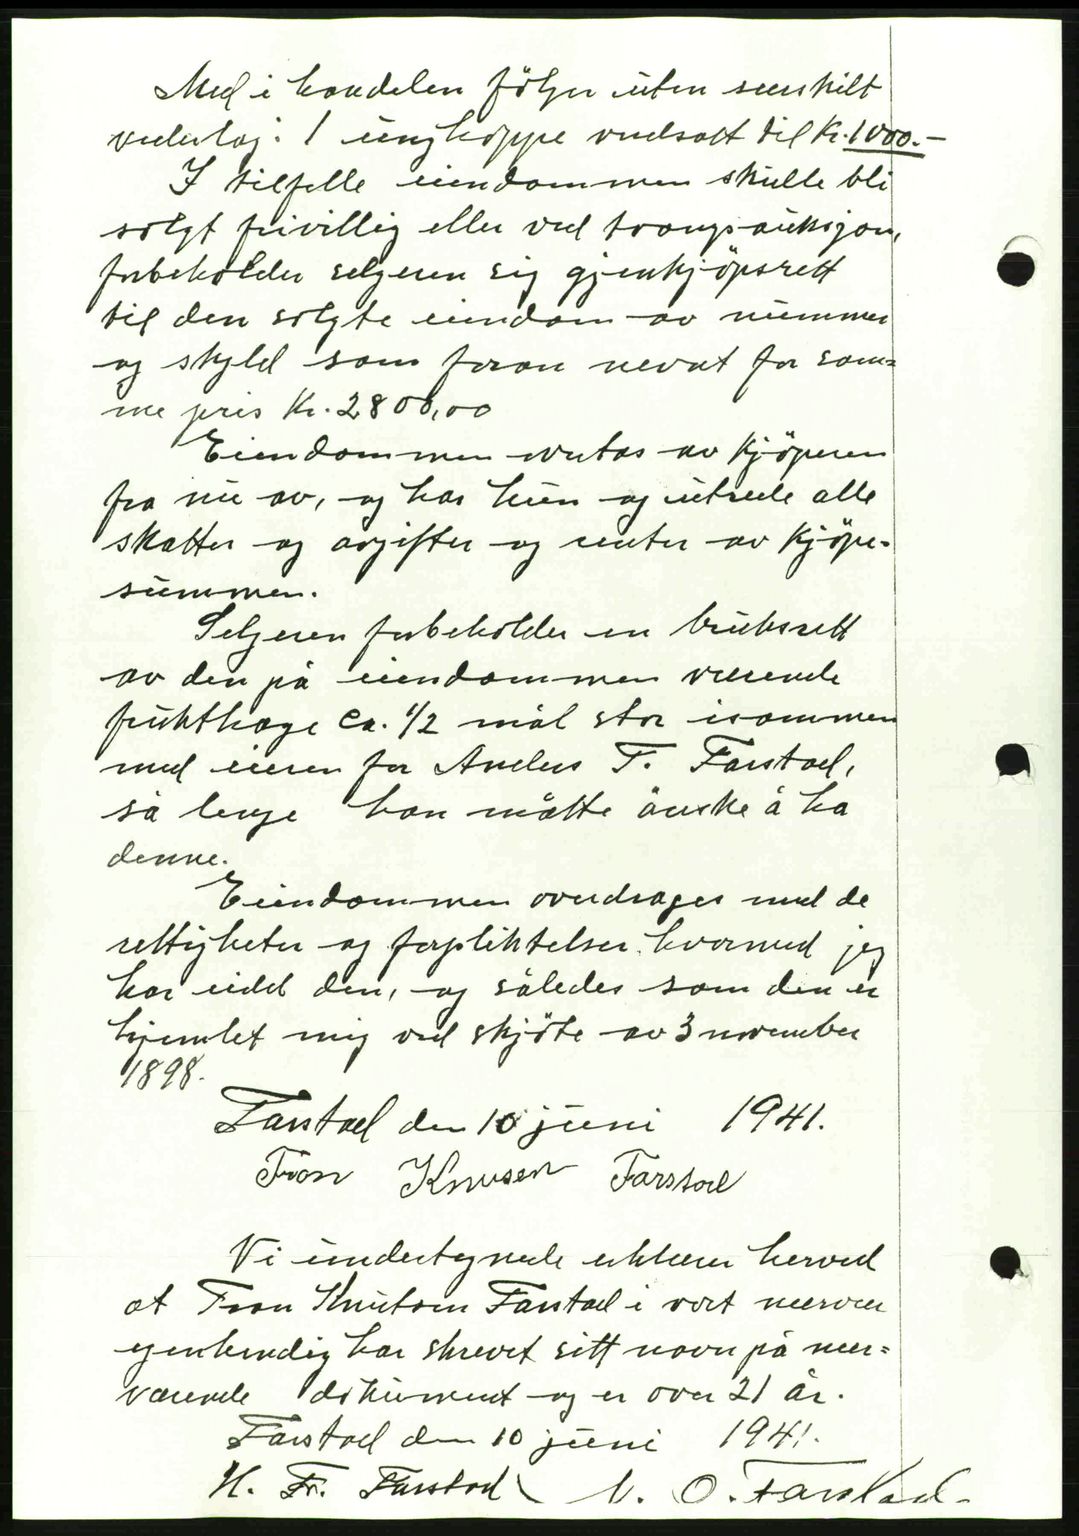 Med i handelen følger uten særskilt
vederlag: 1 unghoppe verdsatt til kr. 1000.-
I tilfelle eiendommen skulle bli
solgt frivillig eller ved tvangsauksjon,
forbeholder selgeren sig gjenkjöpsrett
til den solgte eiendom av nummer
og skyld som foran nevnt for sam=
me pris Kr. 2800,00
Eiendommen overtas av kjöperen
fra nu av, og har hun og utrede alle
skatter og avgifter og renter av kjöpe-
summen.
Selgeren forbeholder en bruksrett
av den på eiendommen værende
frukthage ca. 1/2 mål stor isammen
med eieren for Anders T. Farstad,
så lenge han måtte önske å ha
denne.
Eiendommen overdrages med de
rettigheter og forpliktelser hvormed jeg
har eidd den, og således som den er
hjemlet mig ved skjöte av 3 november
1898.
Farstad den 10 juni 1941.
Fran Knusen Farstad
Vi undertegnede erklærer herved
at Fran Knutsen Farstad i vort nærvær
egenhendig har skrevet sitt navn på nær=
værende dokument og er over 21 år.
Farstad den 10 juni 1941.
H. Fr. Farstad N. O. Farstad